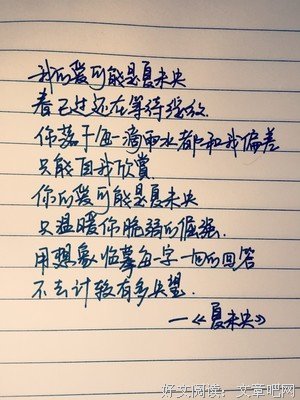 我的爱可能是夏未央
春已过还在等待绽放
你落下每一滴雨水都和我偏差
只能自我欣赏
你的爱可能是夏未央
只温暖你脆弱的倔强
用想象临摹每一字一句的回答
不去计较有多失望
—《夏未央》
好文阅读：文章吧网